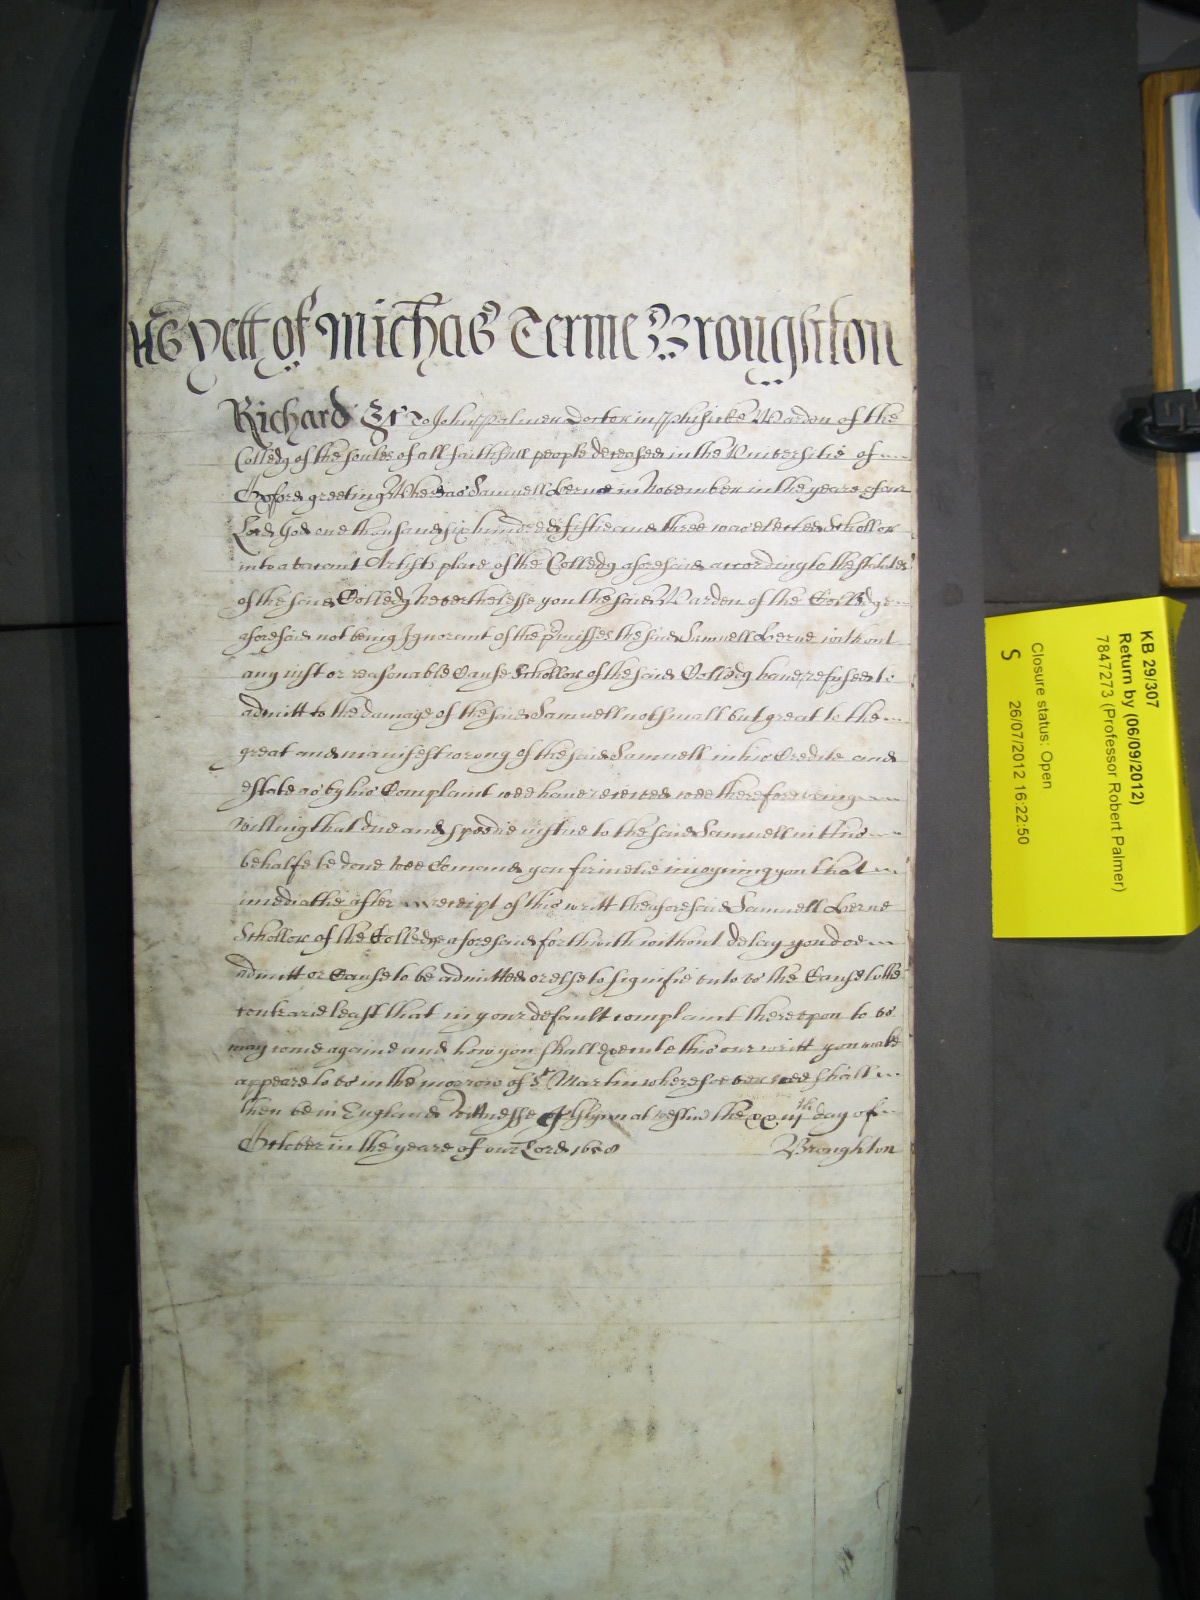 As yett of Michas Terme Broughton
Richard &c To John Palmer Doctor in Phisicke Warden of the
Colledg of the soules of all faithfull people deceased in the Universitie of
Oxford greeting Whereas Samuell Berne in November in the yeare of our
Lord God one thousand six hundred fiftie and three was elected Schollor
into a vacant Artists place of the Colledg aforesaid according to the statutes
of the said Colledg Neverthelesse you the said Warden of the Colledge
aforesaid not being Ignorant of the pmisses the said Samuell Berne without
any iust or reasonable Cause Schollor of the said Colledg have refused to
admitt to the damage of the said Samuell not small but great to the
great and manifest wrong of the said Samuell in his Credite and
estate as by his Complaint wee have received wee therefore being
willing that due and speedie iustice to the said Samuell in this
behalfe be done wee Comand you firmelie inioyning you that
imediatlie after receipt of this writt the aforesaid Samuell Berne
Schollor of the Colledge aforesaid forthwith without delay you doe
admitt or Cause to be admitted or else to signifie unto us the Cause to the
contrarie least that in your default complaint thereupon to us
may come againe and how you shall execute this our writt you make
appeare to us in the morrow of St Martin wheresoever wee shall
then be in England Wittnesse J Glynn at Westm the xxiijth day of
October in the yeare of our Lord 1658 Broughton
KB 29/307
Return by (06/09/2012)
7847273 (Professor Robert Palmer)
Closure status: Open
S 26/07/2012 16:22:50